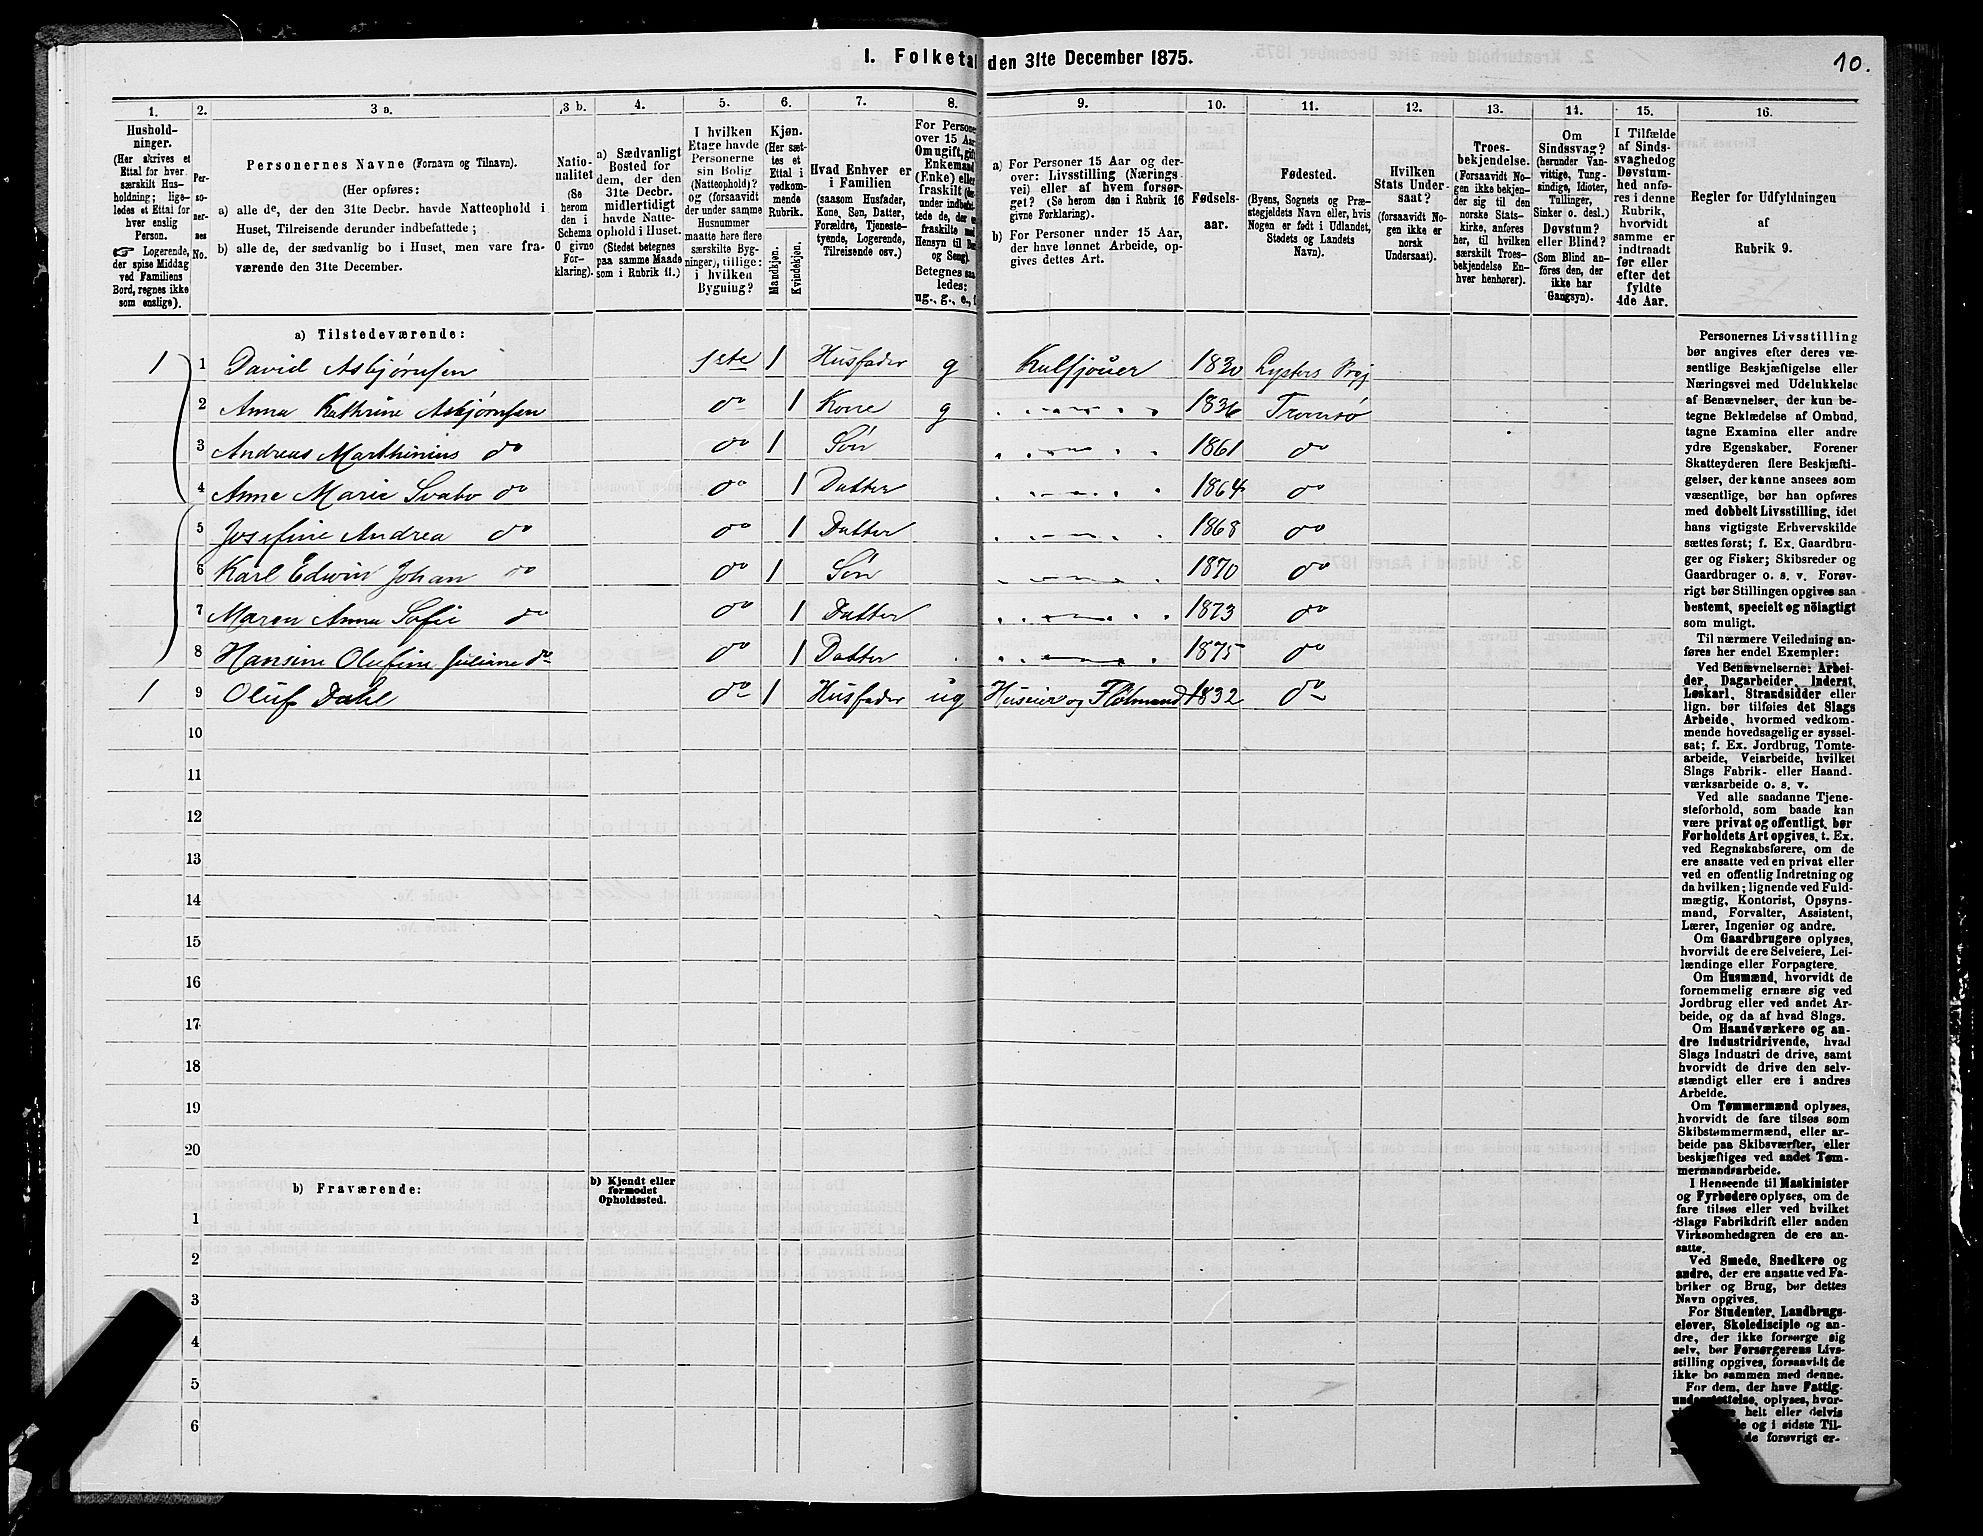 I. Folketal den 31te December 1875.
10.
1.
Hushold-
ninger.
(Her skrives et
Ettal for hver
særskilt Hus-
holdning; lige-
ledes et Ettal for
hver enslig
Person.
Logerende,
der spise Middag
ved Familiens
Bord, regnes ikke
som enslige).
2.
Per-
so-
ner-
nes
No.
3 a.
Personernes Navne (Fornavn og Tilnavn).
(Her opføres:
a) alle de, der den 31te Decbr. havde Natteophold i
Huset, Tilreisende derunder indbefattede;
b) alle de, der sædvanlig bo i Huset, men vare fra-
værende den 31te December.
3 b.
Natio-
nalitet
(Se
herom
den i
Schema
O givne
For-
klaring).
4.
a) Sædvanligt
Bosted for
dem, der den
31te Decbr.
midlertidigt
havde Natte-
ophold i Huset.
(Stedet betegnes
paa samme Maade
som i Rubrik 11.)
5.
I hvilken
Etage havde
Personerne
sin Bolig
(Natteophold)?
og (forsaavidt
der under samme
Husnummer
maatte høre flere
særskilte Byg-
ninger), tillige:
i hvilken
Bygning?
6.
Kjøn.
(Her sæt-
tes et
Ettal i
vedkom-
mende
Rubrik.
Mandkjøn.
Kvindekjøn.
7.
Hvad Enhver er
i Familien
(saasom Husfader,
Kone, Søn, Datter,
Forældre, Tjeneste-
tyende, Logerende,
Tilreisende osv.)
8.
For Persone
over 15 Aar
Om ugift, gift
Enkemand
(Enke) eller
fraskilt
Betegnes saa
ledes:
ug., g., e., f.
9.
a) For Personer 15 Aar og der-
over: Livsstilling (Nærings
vei) eller af hvem forsør-
get? (Se herom den i Rubrik 16
givne Forklaring).
b) For Personer under 15 Aar,
der have lønnet Arbeide, op-
gives dettes Art.
10.
Fødsels-
aar.
11.
Fødested.
(Byens, Sognets og Præ-
stegjeldets Navn eller, hvis
Nogen er født i Udlandet,
Stedets og Landets
Navn).
12.
Hvilken
Stats Under-
saat?
(forsaavidt No-
gen ikke er
norsk
Undersaat).
13.
Troes-
bekjendelse.
(Forsaavidt No-
gen ikke bekjen-
der sig til den
norske Stats-
kirke, anføres
her, til hvilken
særskilt Troes-
bekjendelse En-
hver henhører).
14.
Om
Sindssvag?
(herunder Van-
vittige, Tung-
sindige, Idioter,
Tullinger,
Sinker o. desl.)
Døvstum?
eller Blind?
(Som Blind an-
føres den, der
ikke har
Gangsyn).
15.
I Tilfælde
af Sinds-
svaghed og
Døvstum-
hed anfø-
res i denne
Rubrik,
hvorvidt
samme er
indtraadt
før eller
efter det
fyldte
4de Aar.
16.
Regler for Udfyldningen
af
Rubrik 9.
a) Tilstedeværende:
1 1 David Asbjørnsen 1ste 1 Husfader g 1830 Lysters Prgj
2 Anna Kathrine Asbjørnsen do 1 Kone g 1836 Tromsø
3 Andreas Marthinius do do 1 Søn 1861 do
4 Anne Marie Svabo do do 1 Datter 1864 do
5 Josefine Andrea do do 1 Datter 1868 do
6 Karl Edwin Johan do do 1 Søn 1870 do
7 Maren Anna Sofie do do 1 Datter 1873 do
8 Hansine Olufine Juliane do do 1 Datter 1875 do
1 9 Oluf Dahl do 1 Husfader ug Huseier og 1832 do
10
11
12
13
14
15
16
17
18
19
20
b) Fraværende:
b) Kjendt eller
formodet
Opholdssted.
1
2
3
4
5
6
Personernes Livsstilling
bør angives efter deres væ-
sentlige Beskjæftigelse eller
Næringsvei med Udelukkelse
af Benævnelser, der kun be-
tegne Beklædelse af Ombud,
tagne Examina eller andre
ydre Egenskaber. Forener
Skatteyderen flere Beskjæfti-
gelser, der kunne ansees som
væsentlige, bør han opføres
med dobbelt Livsstilling, idet
hans vigtigste Erhvervskilde
sættes først; f. Ex. Gaardbru-
ger og Fisker; Skibsreder og
Gaardbruger o. s. v. Forøv-
rigt bør Stillingen opgives saa
bestemt, specielt og nöiagtigt
som muligt.
Til nærmere Veiledning an-
føres her endel Exempler:
Ved Benævnelserne: Arbei-
der, Dagarbeider, Inderst,
Løskarl, Strandsidder eller
lign. bør tilføies det Slags
Arbeide, hvormed vedkom-
mende hovedsagelig er syssel-
sat; f. Ex. Jordbrug, Tomte-
arbeide, Veiarbeide, hvilket
Slags Fabrik- eller Haand-
værksarbeide o. s. v.
Ved alle saadanne Tjene-
steforhold, som baade kan
være privat og offentligt, bør
Forholdets Art opgives, t. Ex.
ved Regnskabsførere, om de
ere ansatte ved en privat eller
ved en offentlig Indretning og
da hvilken; lignende ved Fuld-
mægtig, Kontorist, Opsyns-
mand, Forvalter, Assistent,
Lærer, Ingeniør og andre.
Om Gaardbrugere oplyses,
hvorvidt de ere Selveiere, Lei-
lændinge eller Forpagtere.
Om Husmænd, hvorvidt de
fornemmelig ernære sig ved
Jordbrug eller ved andet Ar-
beide, og da af hvad Slags.
Om Haandværkere og an-
dre Industridrivende, hvad
Slags Industri de drive, samt
hvorvidt de drive den selv-
stændigt eller ere i andres
Arbeide.
Om Tømmermænd oplyses,
hvorvidt de fare tilsøs som
Skibstømmermænd, eller ar-
beide paa Skibsværfter, eller
beskjæftiges ved andet Tøm-
mermandsarbeide.
I Henseende til Maskinister
og Fyrbødere oplyses, om de
fare tilsøs eller ved hvilket
Slags Fabrikdrift eller anden
Virksomhedsgren de ere an-
satte.
Ved Smede, Snedkere og
andre, der ere ansatte ved Fa-
briker og Brug, bør dettes
Navn opgives.
For Studenter, Landbrugs-
elever, Skoledisciple og an-
dre, der ikke forsørge sig
selv, bør Forsørgerens Livs-
stilling opgives, forsaavidt de
ikke bo sammen med denne.
For dem, der have Fattig-
understøttelse, oplyses, hvor-
helt eller delvis
de og i sidste Til-
de forøvrigt er-